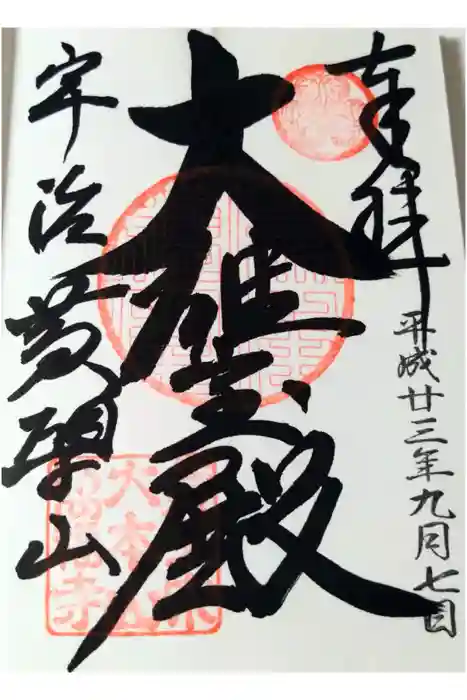 奉拝
平成廿三年九月七日
大雄宝殿
宇治黄檗山
大本山
萬福寺